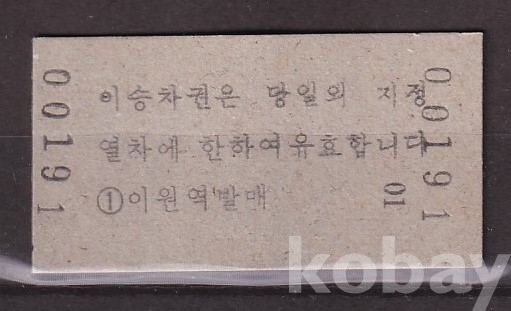 00191
이승차권은 당일의 지정
열차에 한하여유효합니다
①이원역발매
01
00191
kobay